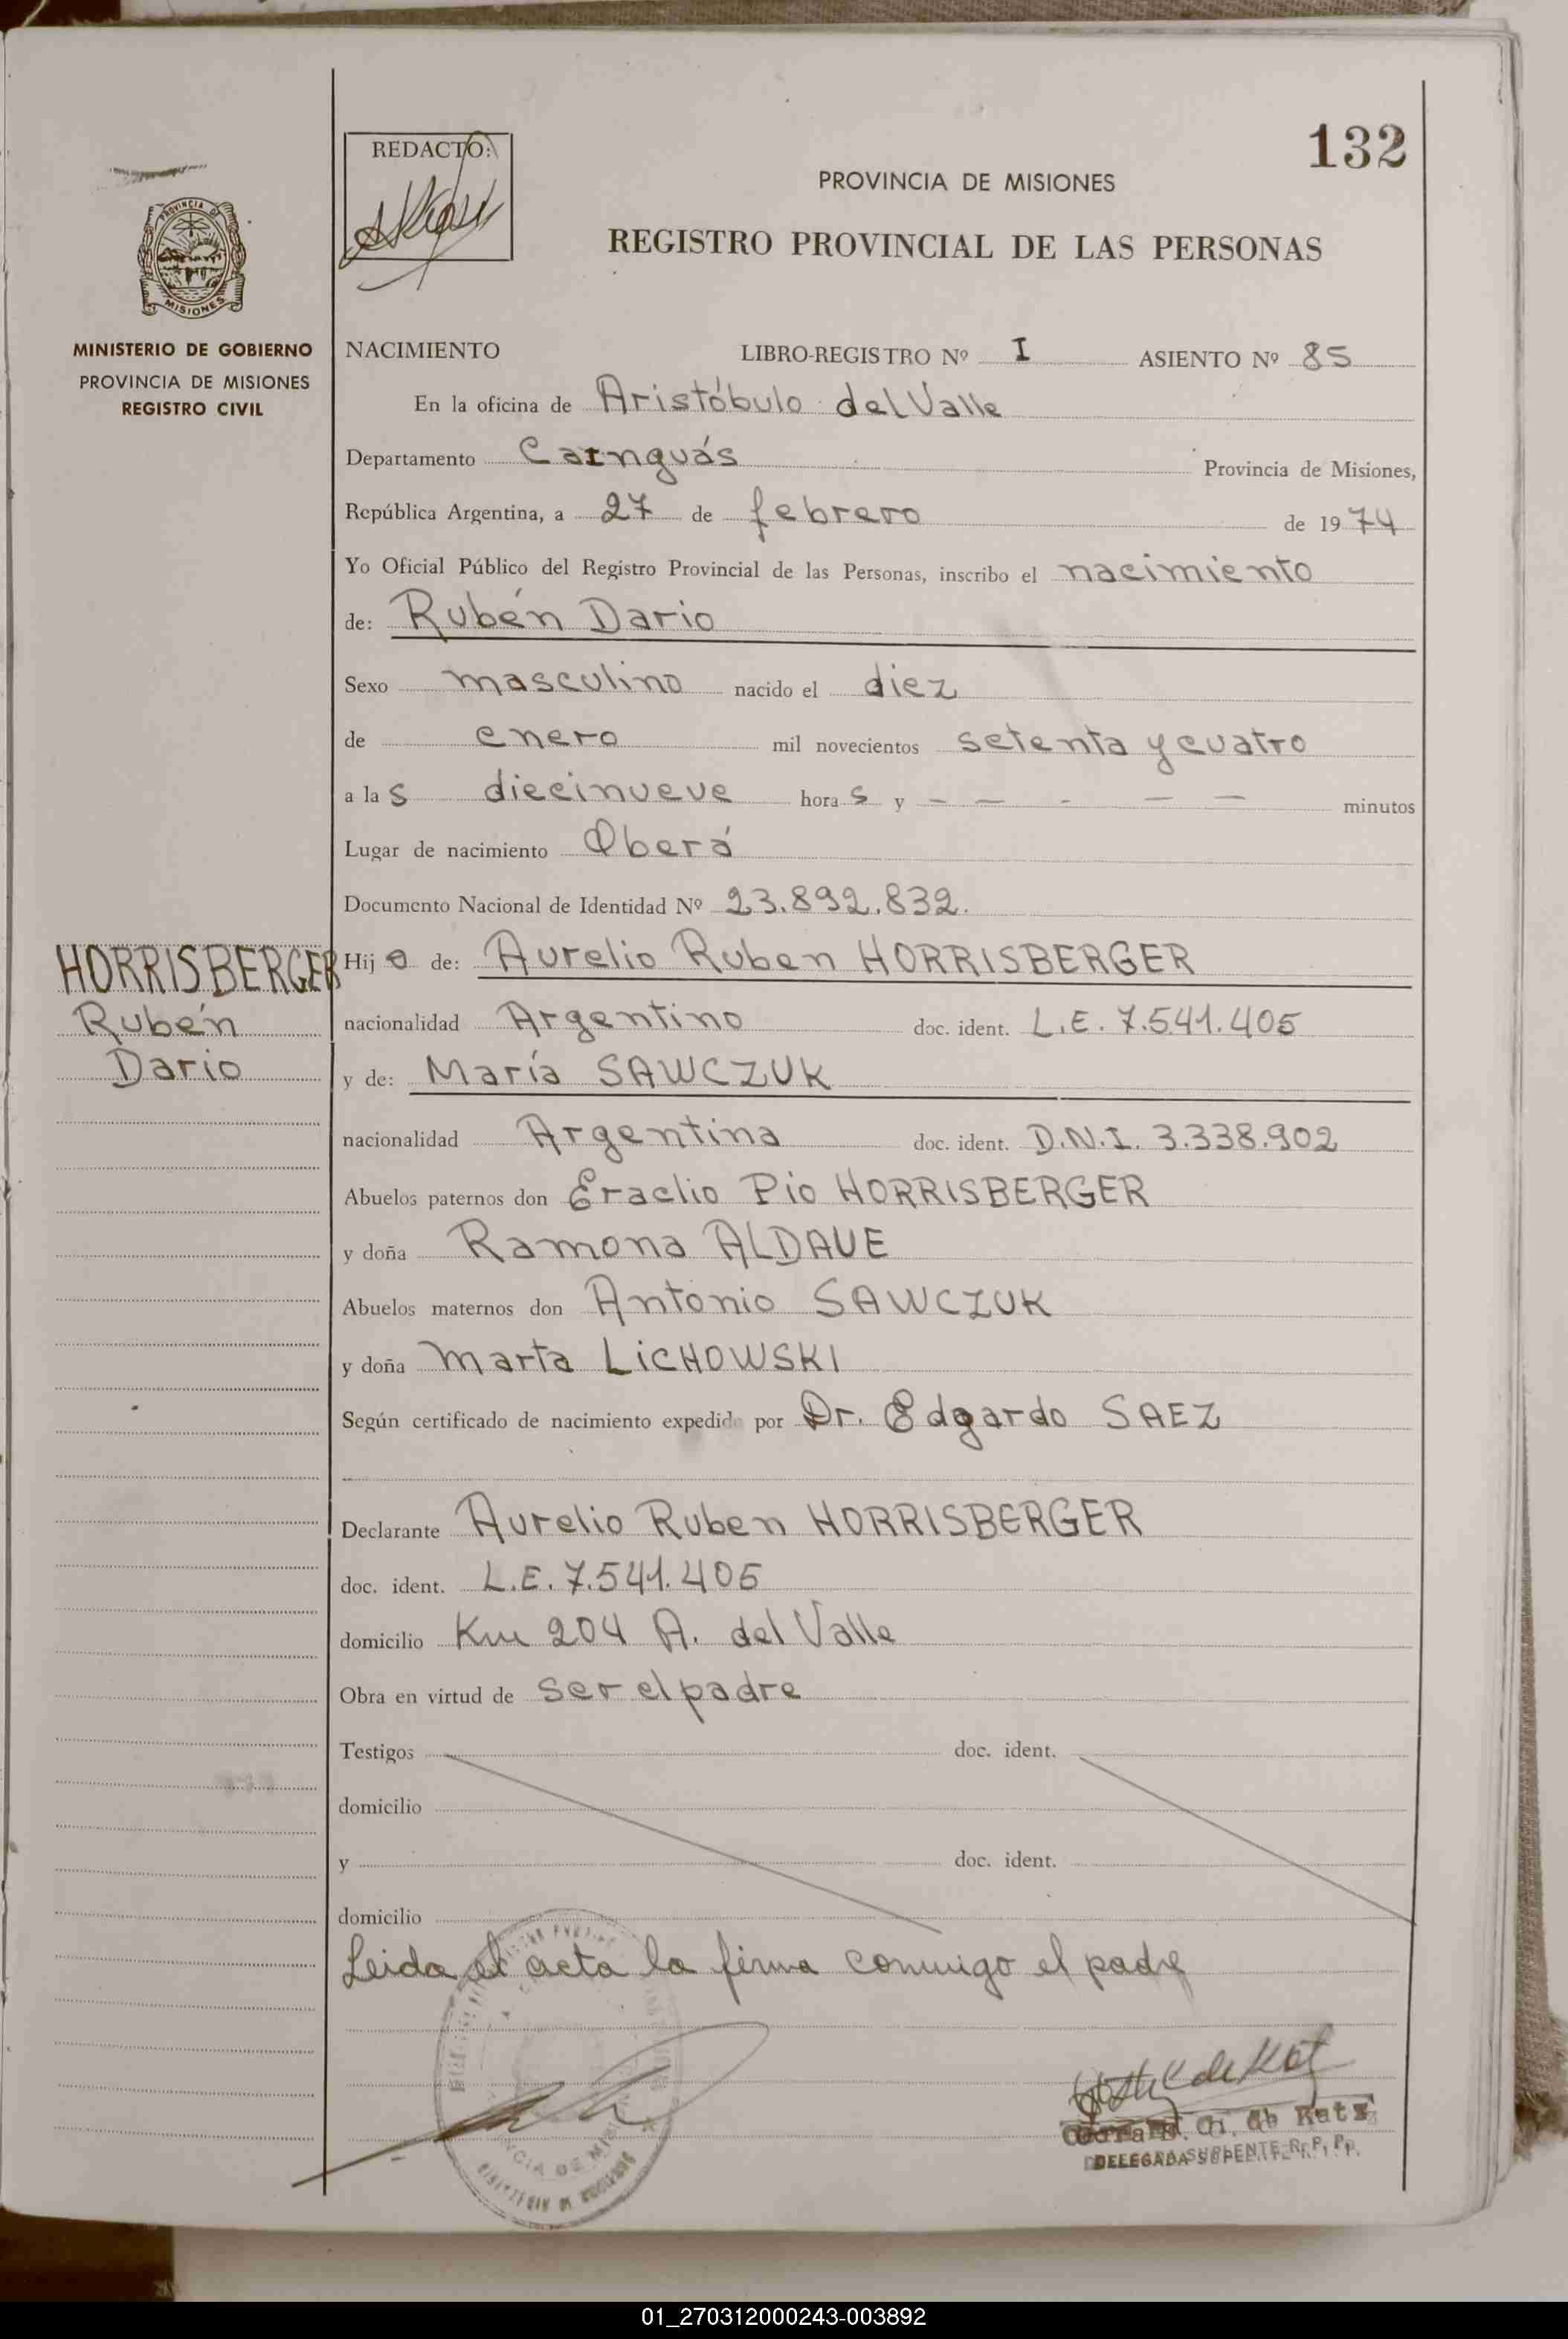 132
REDACTO:
PROVINCIA DE MISIONES
REGISTRO PROVINCIAL DE LAS PERSONAS
PROVINCIA DE
MISIONES
MINISTERIO DE GOBIERNO
PROVINCIA DE MISIONES
REGISTRO CIVIL
NACIMIENTO LIBRO-REGISTRO Nº I ASIENTO Nº 85
En la oficina de Aristóbulo del Valle
Departamento Cainguás Provincia de Misiones,
República Argentina, a 27 de febrero de 1974
Yo Oficial Público del Registro Provincial de las Personas, inscribo el nacimiento
de: Rubén Dario
Sexo masculino nacido el diez
de enero mil novecientos setenta y cuatro
a las diecinueve horas y - - - - - minutos
Lugar de nacimiento Oberá
Documento Nacional de Identidad Nº 23.892.832.
HORRISBERGER
Rubén
Dario
Hijo de: Aurelio Ruben HORRISBERGER
nacionalidad Argentino doc. ident. L.E. 7.541.405
y de: María SAWCZUK
nacionalidad Argentina doc. ident. D.N.I. 3.338.902
Abuelos paternos don Eraclio Pio HORRISBERGER
y doña Ramona ALDAVE
Abuelos maternos don Antonio SAWCZUK
y doña Marta LiCHOWSKI
Según certificado de nacimiento expedido por Dr. Edgardo SAEZ
Declarante Aurelio Ruben HORRISBERGER
doc. ident. L.E. 7.541.405
domicilio Km 204 A. del Valle
Obra en virtud de ser el padre
Testigos doc. ident.
domicilio
y doc. ident.
domicilio
Leida el acta la firma conmigo el padre
de Katz
DELEGADA SUPLENTE R. P. P.
01_270312000243-003892